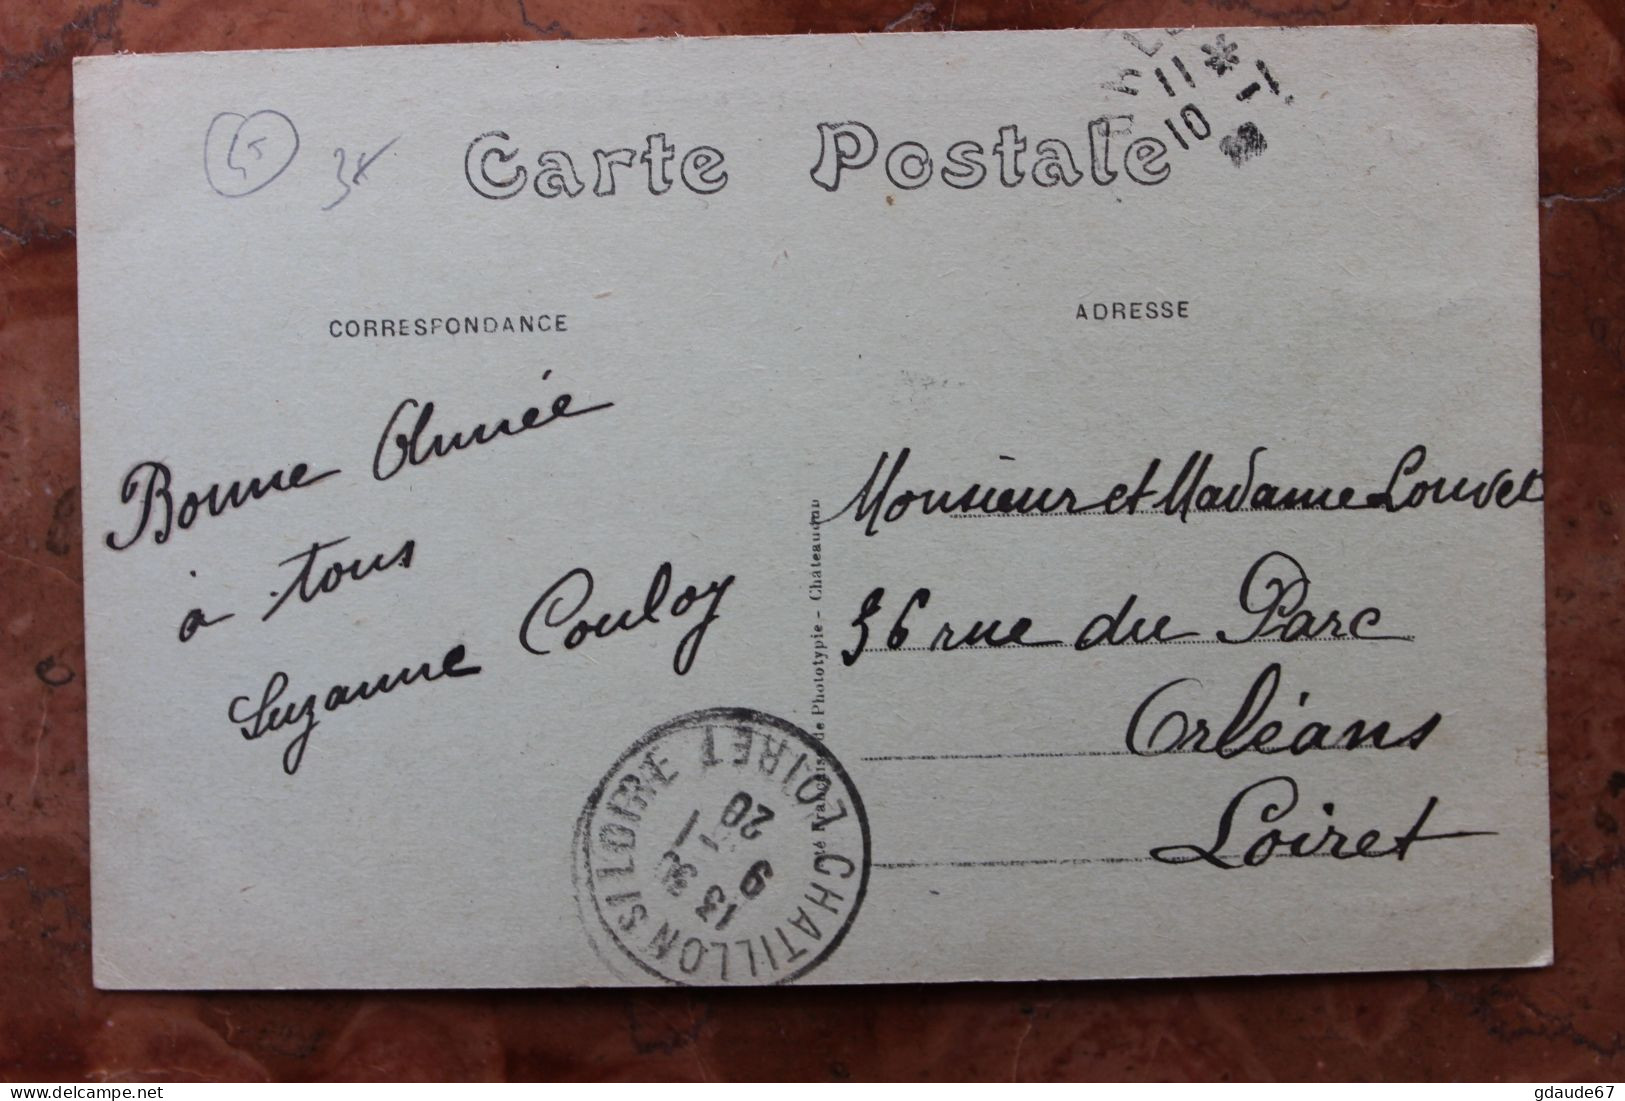 45
Carte Postale
11 *
10 -1
CORRESPONDANCE
ADRESSE
Bonne Année
à tous
Suzanne Couloy
Monsieur et Madame Louvet
36 rue du Parc
Orléans
Loiret
de Phototypie - Chateaudun
CHATILLON S/ LOIRE LOIRET
13 9
20
gdaude67